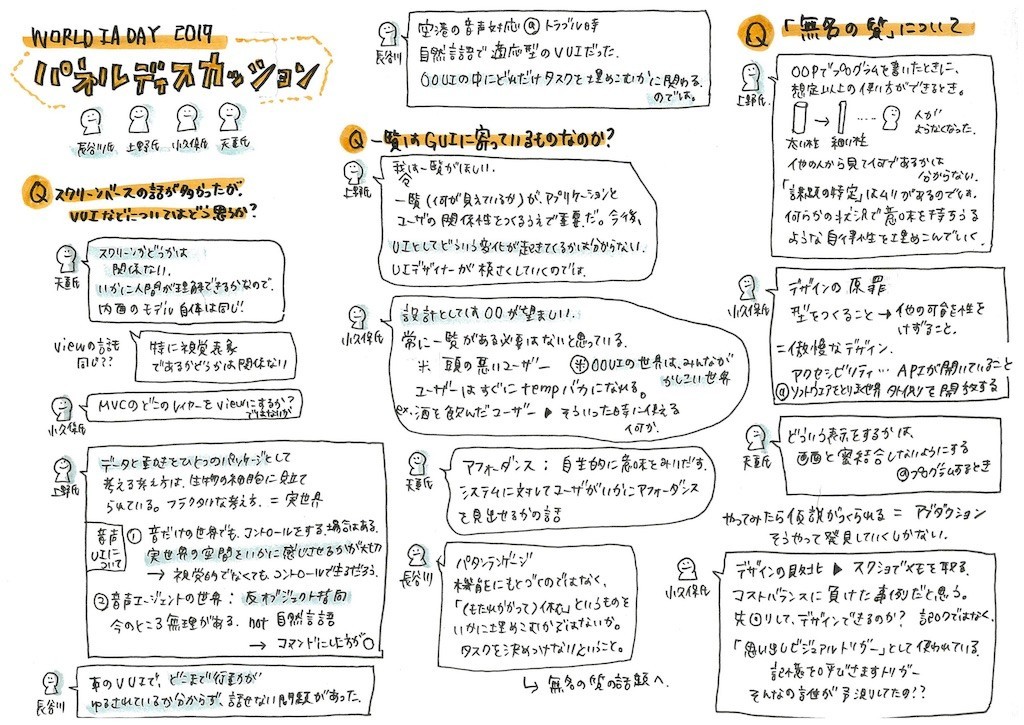 WORLD IA DAY 2019
パネルディスカッション
長谷川氏 上野氏 小久保氏 天重氏
Q スクリーンベースの話が多かったが、
VUIなどについてはどう思うか?
天重氏
スクリーンかどうかは
関係ない。
いかに人間が理解できるかなので、
内面のモデル自体は同じ!
viewの話も
同じ??
特に視覚表象
であるかどうかは関係ない
小久保氏
MVCのどこのレイヤーをviewにするか?
ではないか
上野氏
データと動きをひとつのパッケージとして
考える考え方は、生物の細胞に見立て
られている。フラクタルな考え方。=実世界
音声UIについて
① 音だけの世界でも、コントロールをする場合はある。
実世界の空間をいかに感じさせるかが大切
→ 視覚的でなくても、コントロールできるだろう。
② 音声エージェントの世界:反オブジェクト指向
今のところ無理がある。not 自然言語
→ コマンドにした方が○
長谷川
車のVUIで、どこまで行動が
ゆるされているか分からず、話せない問題があった。
長谷川
空港の音声対応 @トラブル時
自然言語で適応型のVUIだった。
OOUIの中にどれだけタスクを埋めこむかに関わる
のでは。
Q 一覧はGUIに寄っているものなのか?
上野氏
我は一覧がほしい。
一覧(何が見えているか)が、アプリケーションと
ユーザの関係性をつくるうえで重要だ。今後、
UIとしてどういう変化が起きてくるかは分からない。
UIデザイナーが模さくしていくのでは。
小久保氏
設計としてはOOが望ましい!
常に一覧がある必要はないと思っている。
※ 頭の悪いユーザー
※OOUIの世界は、みんなが
かしこい世界
ユーザーはすぐにtempバカになれる。
ex. 酒を飲んだユーザー ▶ そういった時に使える
何か。
天重氏
アフォーダンス:自生的に意味をみいだす。
システムに対してユーザがいかにアフォーダンス
を見出せるかの話
長谷川
パタンランゲージ
機能にもとづくのではなく、
「(もたれかかって)休む」というものを
いかに埋めこむかではないか。
タスクを決めつけないということ。
↳ 無名の質の話題へ。
Q 「無名の質」について
上野氏
OOPでプログラムを書いたときに、
想定以上の使い方ができるとき。
太い柱 → 細い柱 … 人が
よらなくなった。
他の人から見て何であるかは
分からない。
「課題の特定」はムリがあるのでは。
何らかの状況で意味を持ちうる
ような自律性を埋めこんでいく。
小久保氏
デザインの原罪
型をつくること → 他の可能性を
けずること。
=傲慢なデザイン。
アクセシビリティ… APIが開いていること
@ソフトウェアをとりまく世界
天重氏
どういう表示をするかは、
画面と密結合しないようにする
@プログラムするとき
やってみたら仮説がつくられる = アブダクション
そうやって発見していくしかない。
小久保氏
デザインの具対化 ▶ スクショでメモを取る。
コストバランスに負けた事例だと思う。
先回りして、デザインできるのか? 記ロクではなく、
「思い出しビジュアルトリガー」として使われている。
記憶を呼びさますトリガー
そんなの誰が予測してたの!?